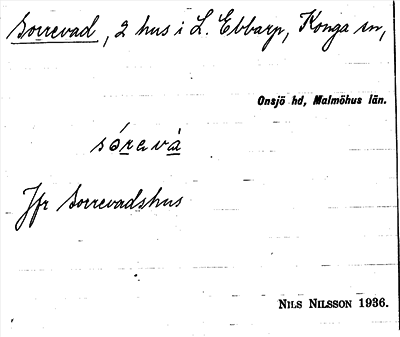 Sorrevad, 2 hus i L. Ebbarp, Konga sn,
Onsjö hd, Malmöhus län.
sǿrava̍
Jfr Sorrevadshus
NILS NILSSON 1936.